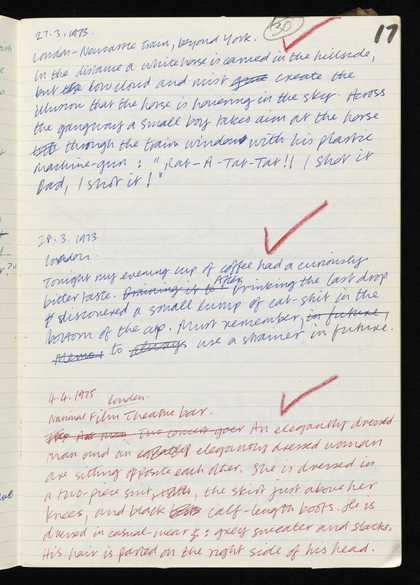 30
17
27.3.1973
London-Newcastle Train, beyond York.
In the distance a white horse is carved in the hillside,
but the low cloud and mist create the
illusion that the horse is hovering in the sky. Across
the gangway a small boy takes aim at the horse
through the train window with his plastic
machine-gun : "Rat-A-Tat-Tat!! I shot it
Dad, I shot it!"
28.3.1973
London.
Tonight my evening cup of coffee had a curiously
bitter taste. Draining it to After drinking the last drop
I discovered a small lump of cat-shit in the
bottom of the cup. Must remember, in future,
to always use a strainer in future.
4.4.1975 London.
National Film Theatre bar.
Two concert goer An elegantly dressed
man and an elegantly dressed woman
are sitting opposite each other. She is dressed in
a two-piece suit, with, the skirt just above her
knees, and black calf-length boots. He is
dressed in casual-wear : grey sweater and slacks.
His hair is parted on the right side of his head.